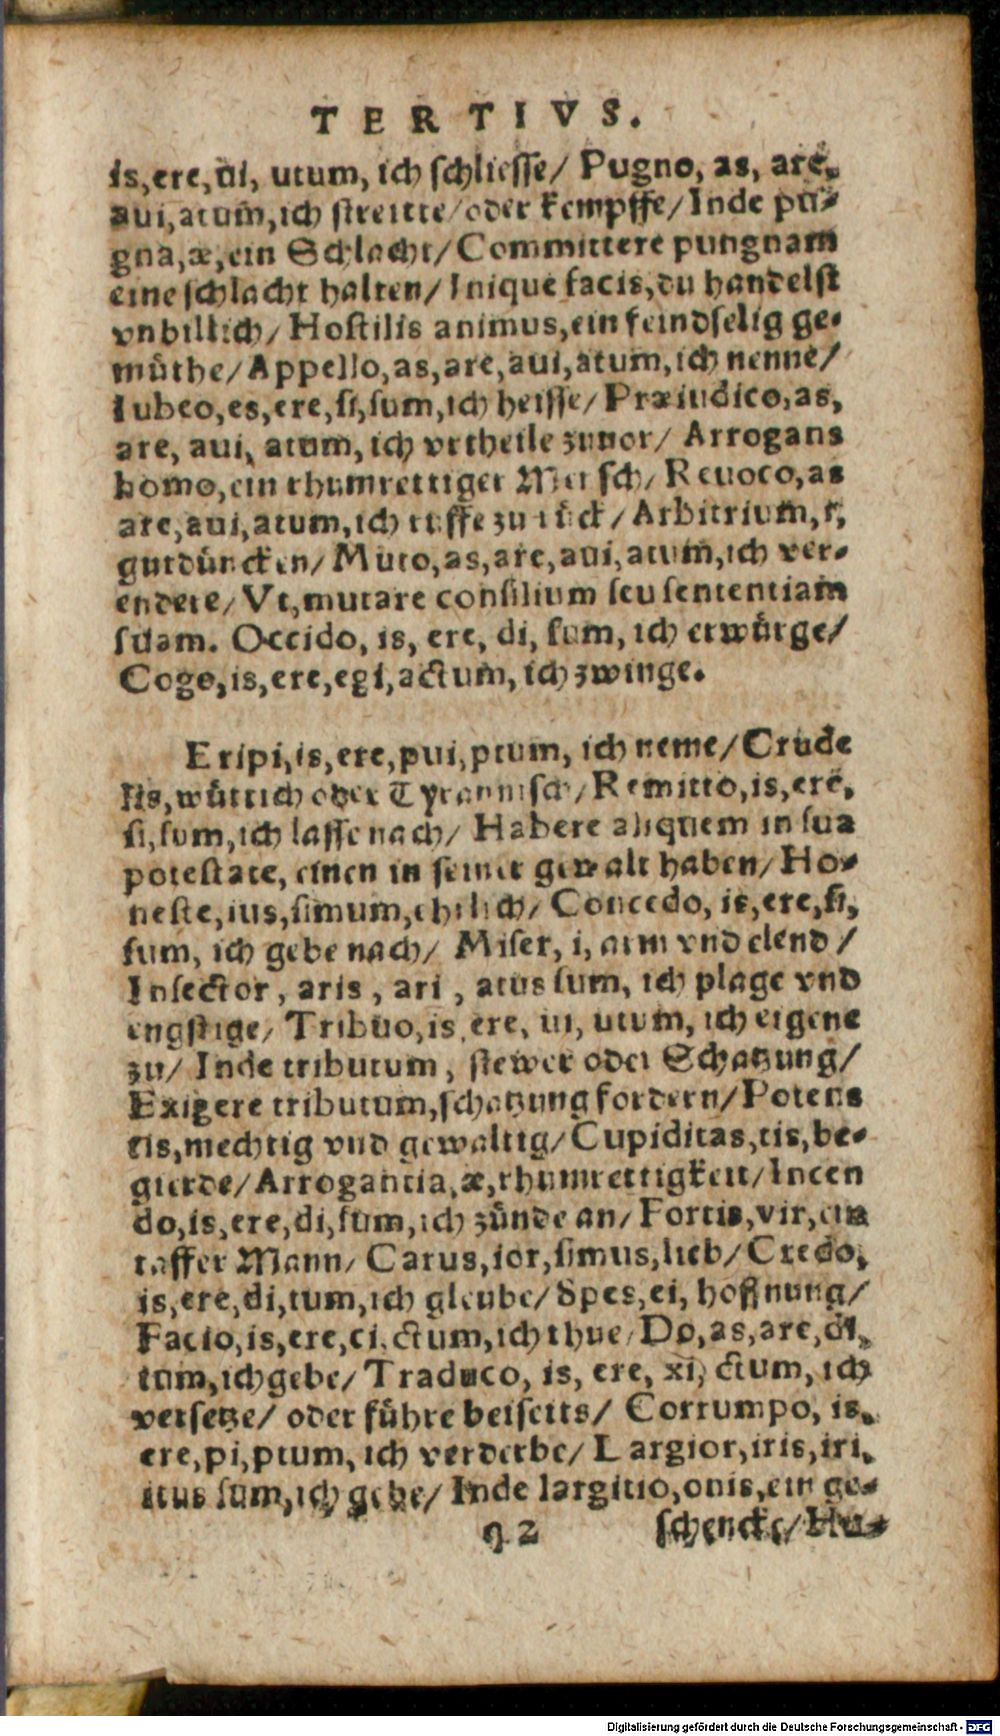 TERTIVS.
is,ere,ui, utum, ich schliesse/ Pugno, as, are,
aui,atum,ich streitte/oder kempffe/Inde pu-
gna,æ,ein Schlacht/Committere pungnam
eine schlacht halten/Inique facis,du handelst
vnbillich/Hostilis animus,ein feindselig ge-
můthe/Appello,as,are,aui,atum,ich nenne/
Iubeo,es,ere,si,sum,ich heisse/Præiudico,as,
are, aui, atum, ich vrtheile zuuor/ Arrogans
homo,ein rhumrettiger Mensch/Reuoco,as
are,aui,atum,ich ruffe zu růck/Arbitrium,r,
gutdůncken/Muto,as,are,aui,atum,ich ver-
endere/Vt,mutare consilium seu sententiam
suam. Occido, is, ere, di, sum, ich erwůrge/
Cogo,is,ere,egi,actum,ich zwinge.
Eripi,is,ere,pui,ptum, ich neme/Crude
lis,wůttich oder Tyrannisch/Remitto,is,ere,
si,sum,ich lasse nach/ Habere aliquem in sua
potestate, einen in seiner gewalt haben/Ho-
neste,ius,simum,ehrlich/Concedo, is,ere,si,
sum, ich gebe nach/ Miser, i, arm vnd elend/
Insector, aris, ari, atus sum, ich plage vnd
engstige/Tribuo,is,ere, ui, utum, ich eigene
zu/ Inde tributum, stewer oder Schatzung/
Exigere tributum,schatzung fordern/Potens
tis,mechtig vnd gewaltig/Cupiditas,tis,be-
gierde/Arrogantia,æ,rhumrettigkeit/Incen
do,is,ere,di,sum,ich zůnde an/Fortis,vir,ein
taffer Mann/Carus,ior,simus,lieb/Credo,
is,ere,di,tum,ich gleube/Spes,ei, hoffnung/
Facio,is,ere,ci,ctum,ich thue/Do,as,are,di,
tum,ich gebe/Traduco, is, ere, xi, ctum, ich
versetze/ oder fůhre beiseits/ Corrumpo, is,
ere,pi,ptum, ich verderbe/Largior,iris,iri,
itus sum,ich gebe/Inde largitio,onis,ein ge-
2 schencke/Hu-
Digitalisierung gefördert durch die Deutsche Forschungsgemeinschaft - DFG